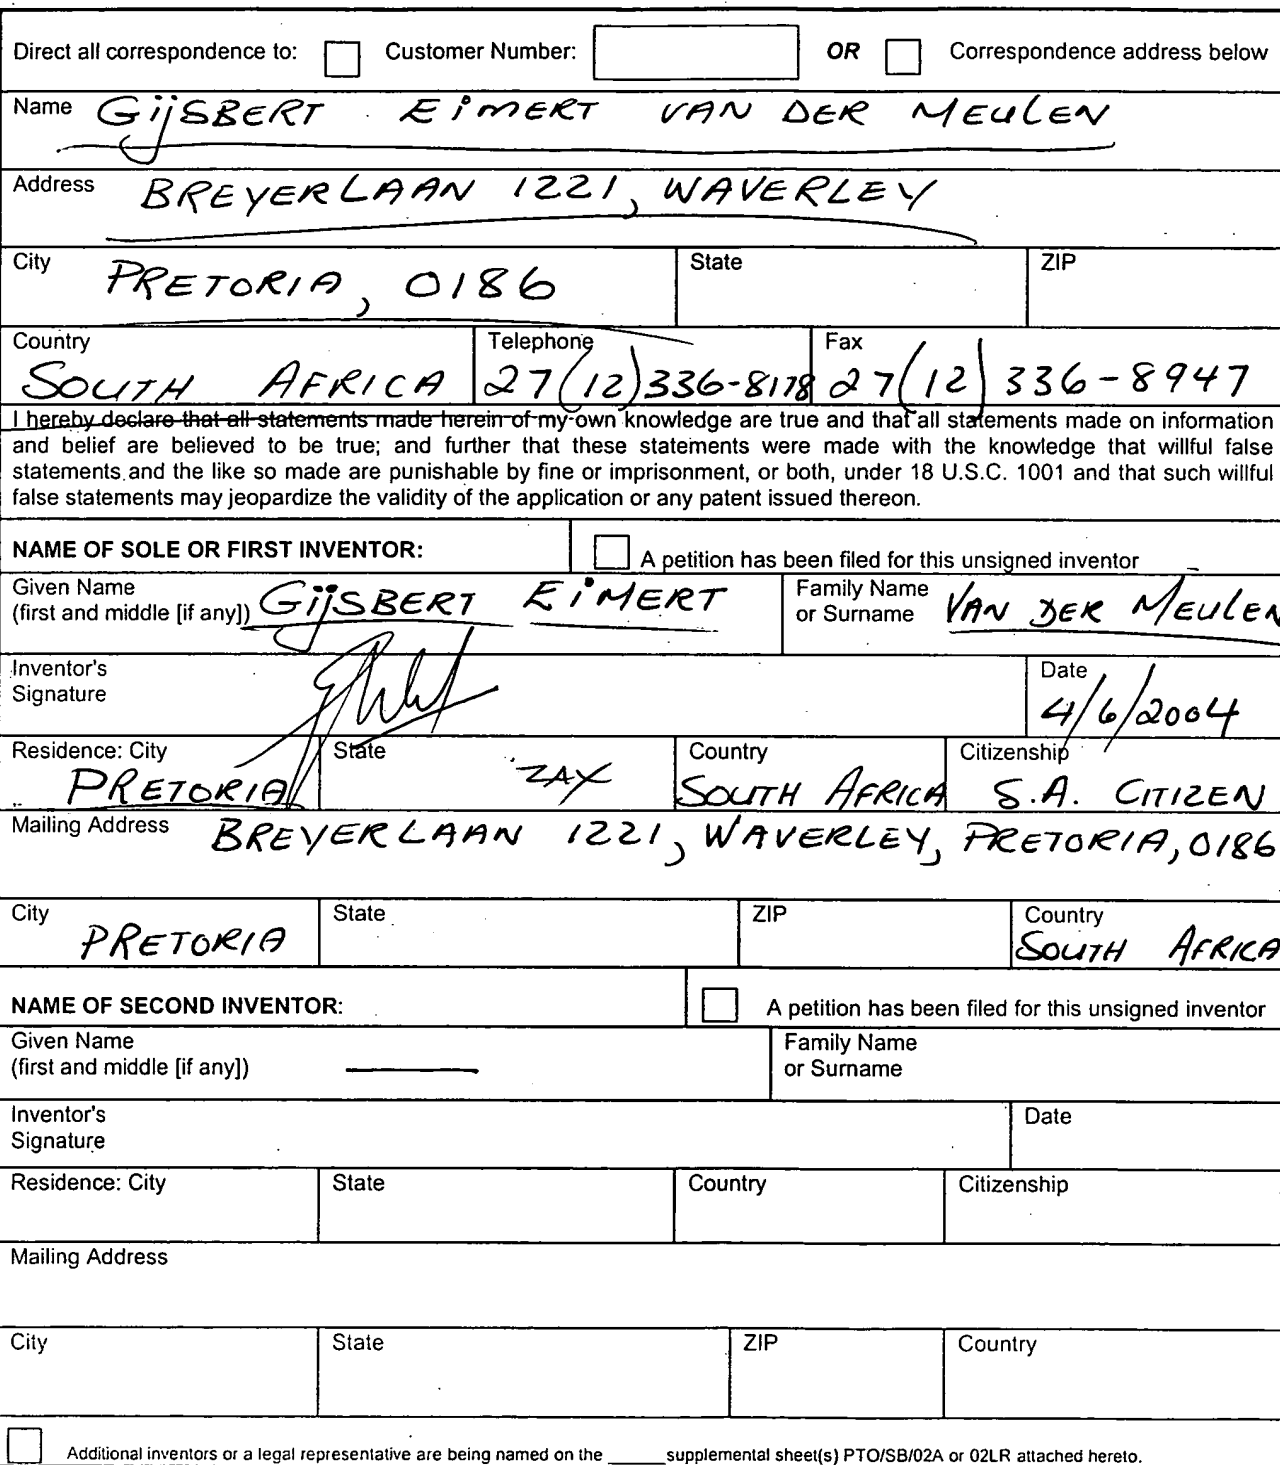 Direct all correspondence to: Customer Number: OR Correspondence address below
Name GijSBERT EiMERT VAN DER MEULEN
Address BREYERLAAN 1221, WAVERLEY
City PRETORIA, 0186 State ZIP
Country SOUTH AFRICA Telephone 27(12)336-8178 Fax 27(12) 336-8947
I hereby declare that all statements made herein of my own knowledge are true and that all statements made on information
and belief are believed to be true; and further that these statements were made with the knowledge that willful false
statements and the like so made are punishable by fine or imprisonment, or both, under 18 U.S.C. 1001 and that such willful
false statements may jeopardize the validity of the application or any patent issued thereon.
NAME OF SOLE OR FIRST INVENTOR: A petition has been filed for this unsigned inventor
Given Name
(first and middle [if any]) GijSBERT EiMERT Family Name
or Surname VAN DER MEULEN
Inventor's
Signature Date 4/6/2004
Residence: City PRETORIA State ZAX Country SOUTH AFRICA Citizenship S.A. CITIZEN
Mailing Address BREYERLAAN 1221, WAVERLEY, PRETORIA, 0186
City PRETORIA State ZIP Country SOUTH AFRICA
NAME OF SECOND INVENTOR: A petition has been filed for this unsigned inventor
Given Name
(first and middle [if any]) Family Name
or Surname
Inventor's
Signature Date
Residence: City State Country Citizenship
Mailing Address
City State ZIP Country
Additional inventors or a legal representative are being named on the _____ supplemental sheet(s) PTO/SB/02A or 02LR attached hereto.